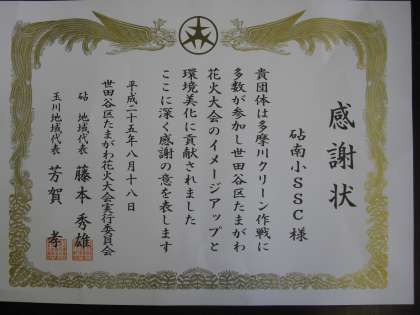 感謝状
砧南小SSC 様
貴団体は多摩川クリーン作戦に
多数が参加し世田谷区たまがわ
花火大会のイメージアップと
環境美化に貢献されました
ここに深く感謝の意を表します
平成二十五年八月十八日
世田谷区たまがわ花火大会実行委員会
砧 地域代表 藤本 秀雄
玉川地域代表 芳賀 孝